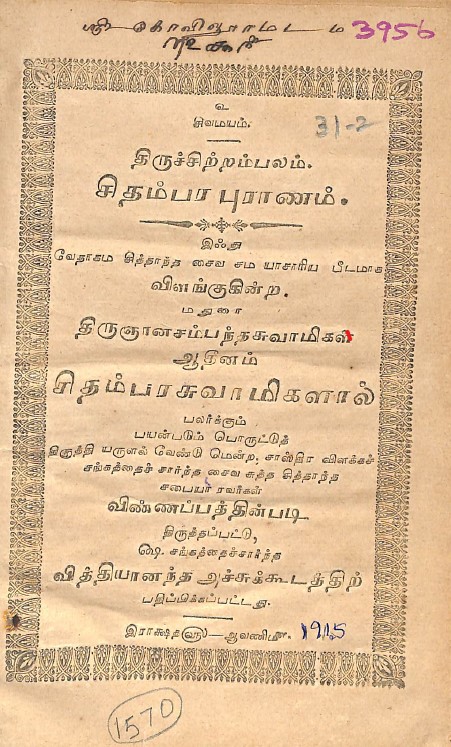 ஸ்ரீ கோவிலூர் மடம் 3956
உ
சிவமயம்.
31-2
திருச்சிற்றம்பலம்.
சிதம்பர புராணம்.
இஃது
வேதாகம சித்தாந்த சைவ சம யாசாரிய பீடமாக
விளங்குகின்ற.
மதுரை
திருஞானசம்பந்தசுவாமிகள்
ஆதீனம்
சிதம்பரசுவாமிகளால்
பலர்க்கும்
பயன்படும் பொருட்டுத்
திருத்தி யருளல் வேண்டு மென்ற, சாஸ்திர விளக்கச்
சங்கத்தைச் சார்ந்த சைவ சுத்த சித்தாந்த
சபையா ரவர்கள்
விண்ணப்பத்தின்படி
திருத்தப்பட்டு,
ஷ சங்கத்தைச்சார்ந்த
வித்தியானந்த அச்சுக்கூடத்திற்
பதிப்பிக்கப்பட்டது.
இராக்ஷத௵—ஆவணி௴. 1915
1570